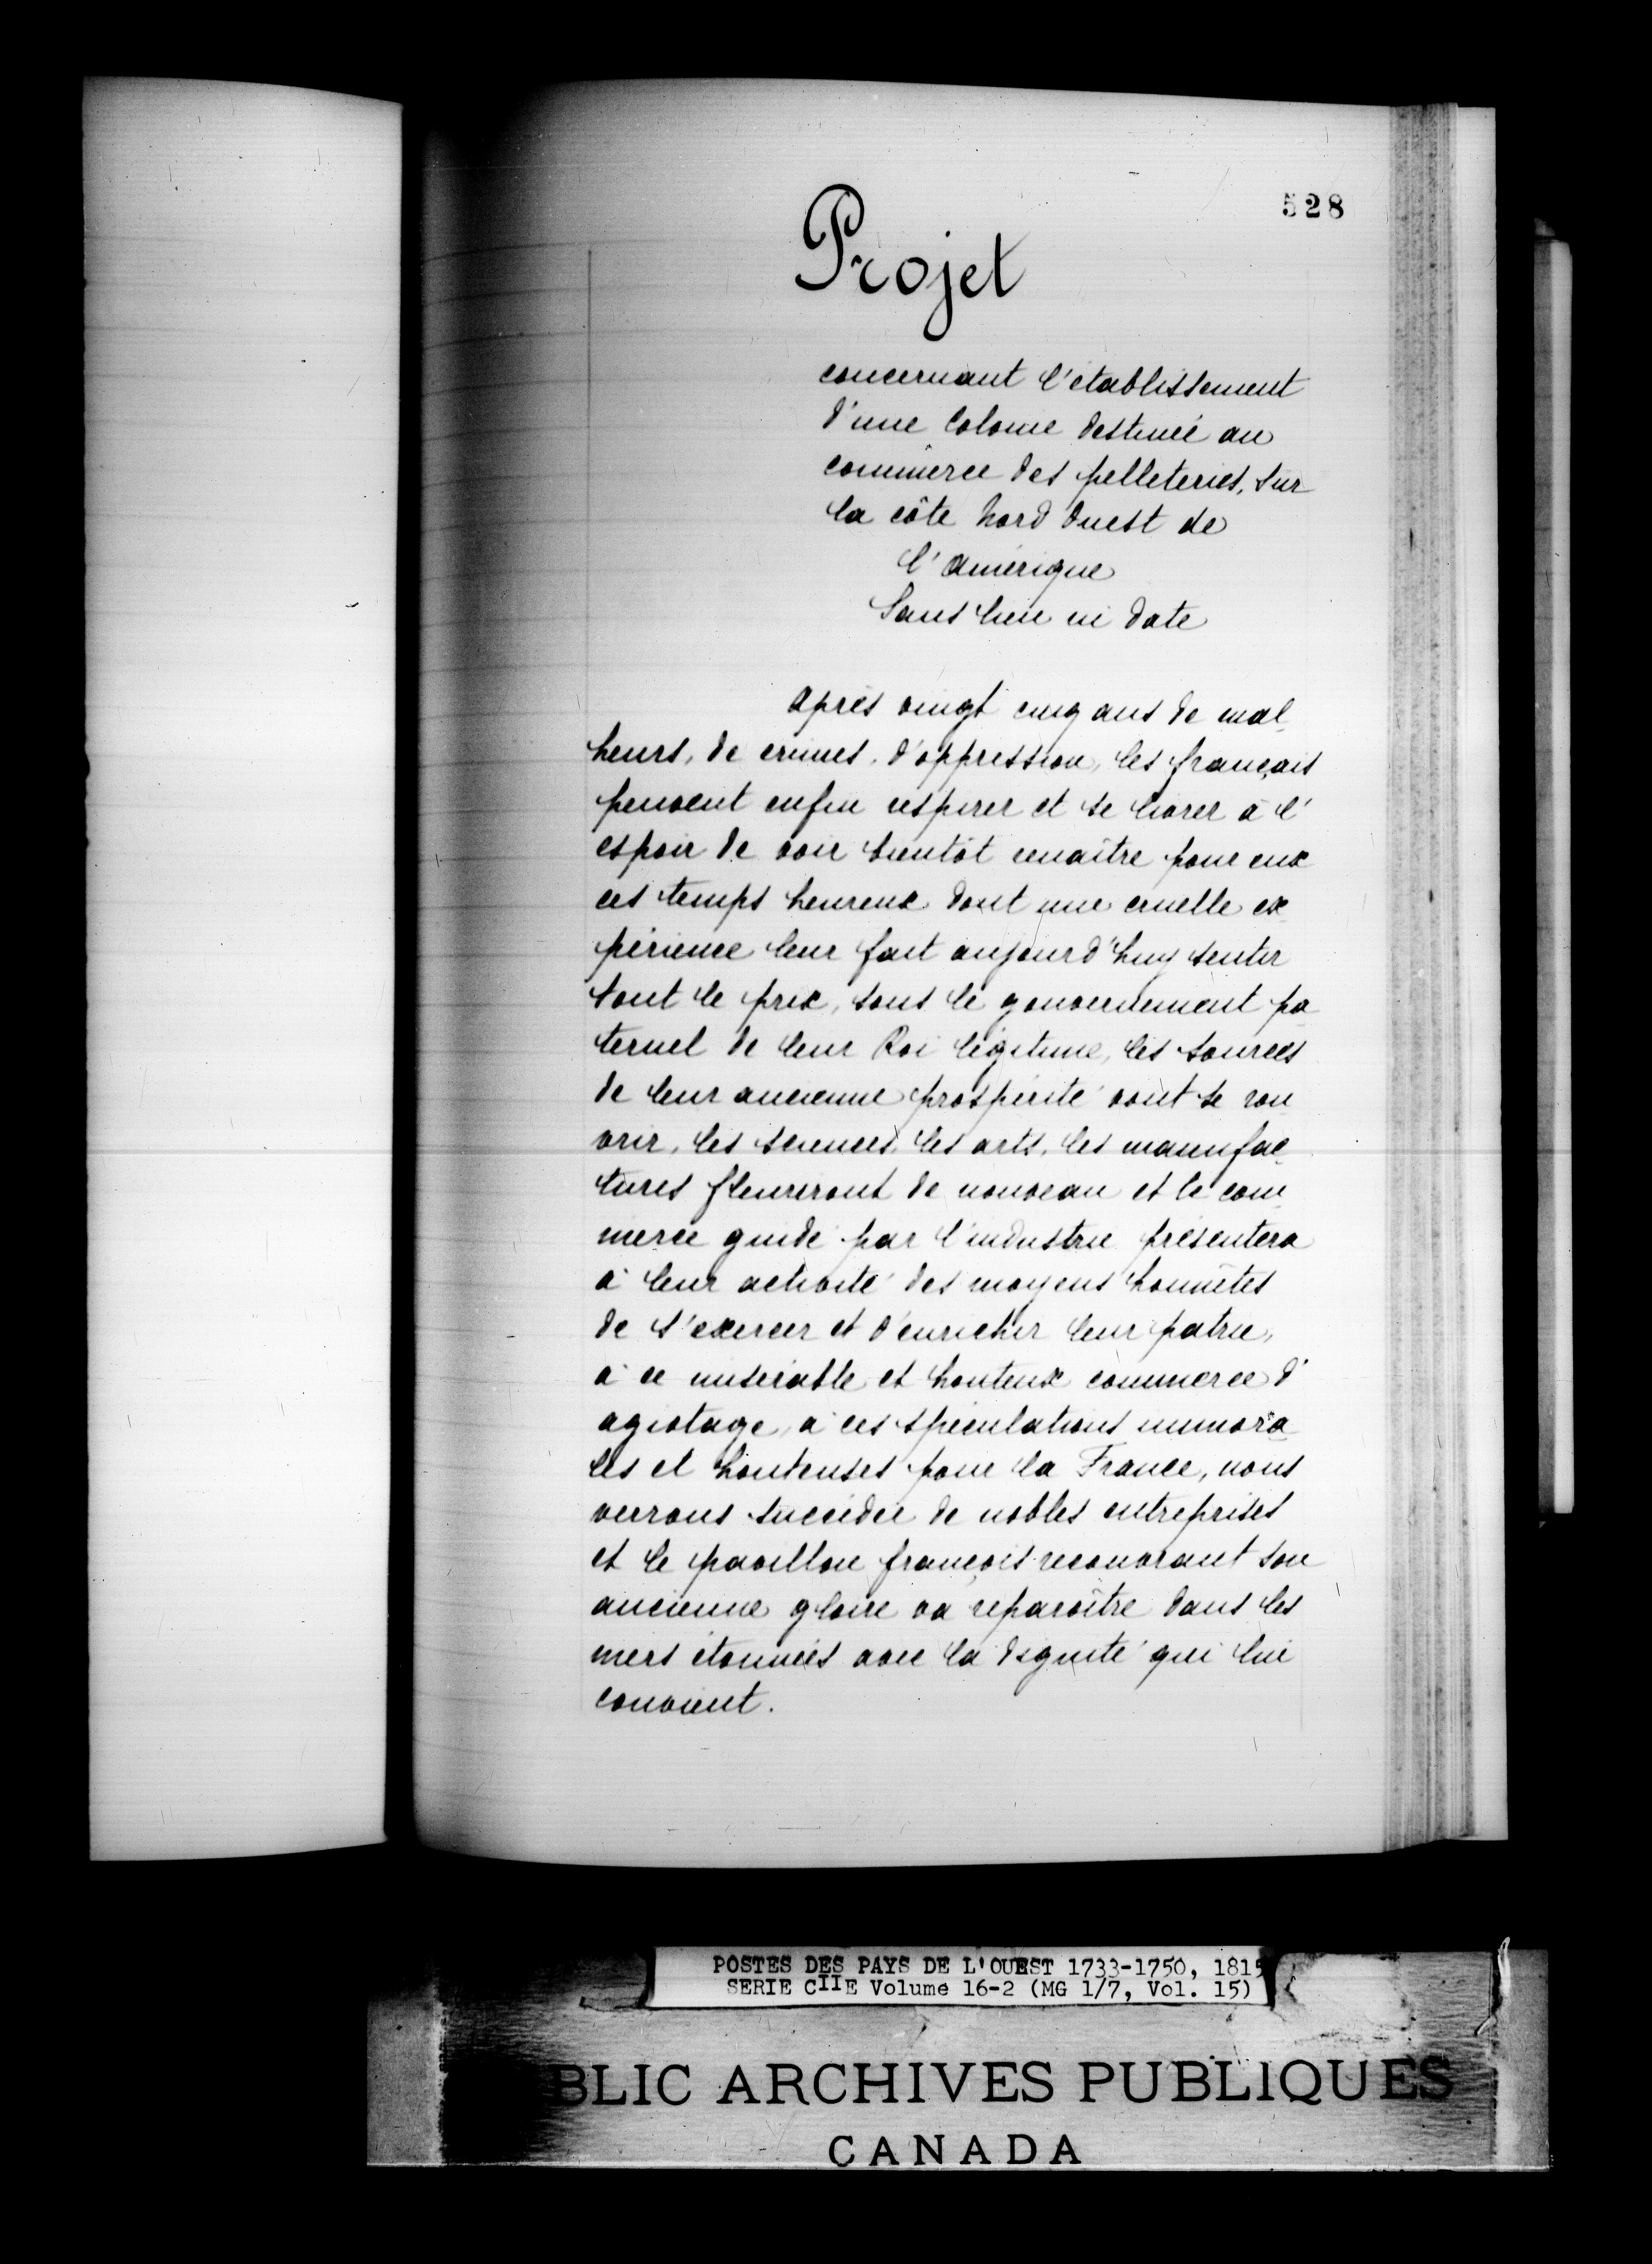 528
Projet
concernant l'établissement
d'une Colonie destinée au
commerce des pelleteries, sur
la côte Nord Ouest de
l'Amérique
Sans lieu ni date
Après vingt cinq ans de mal
heurs, de crimes, d'oppression, les français
peuvent enfin respirer et se livrer à l'
espoir de voir bientôt renaître pour eux
ces temps heureux dont une cruelle ex
périence leur fait aujourd'huy sentir
tout le prix, sous le gouvernement pa
ternel de leur Roi légitime, les sources
de leur ancienne prospérité vont se rou
vrir, les sciences, les arts, les manufac
tures fleuriront de nouveau et le com
merce guidé par l'industrie présentera
à leur activité des moyens honnêtes
de s'exercer et d'enrichir leur patrie,
à ce misérable et honteux commerce d'
agiotage, à ces spéculations immora
les et honteuses pour la France, nous
verrons succéder de nobles entreprises
et le pavillon françois recouvrant son
ancienne gloire va reparoître dans les
mers étonnées avec la dignité qui lui
convient.
POSTES DES PAYS DE L'OUEST 1733-1750, 1815
SERIE CIIE Volume 16-2 (MG 1/7, Vol. 15)
BLIC ARCHIVES PUBLIQUES
CANADA